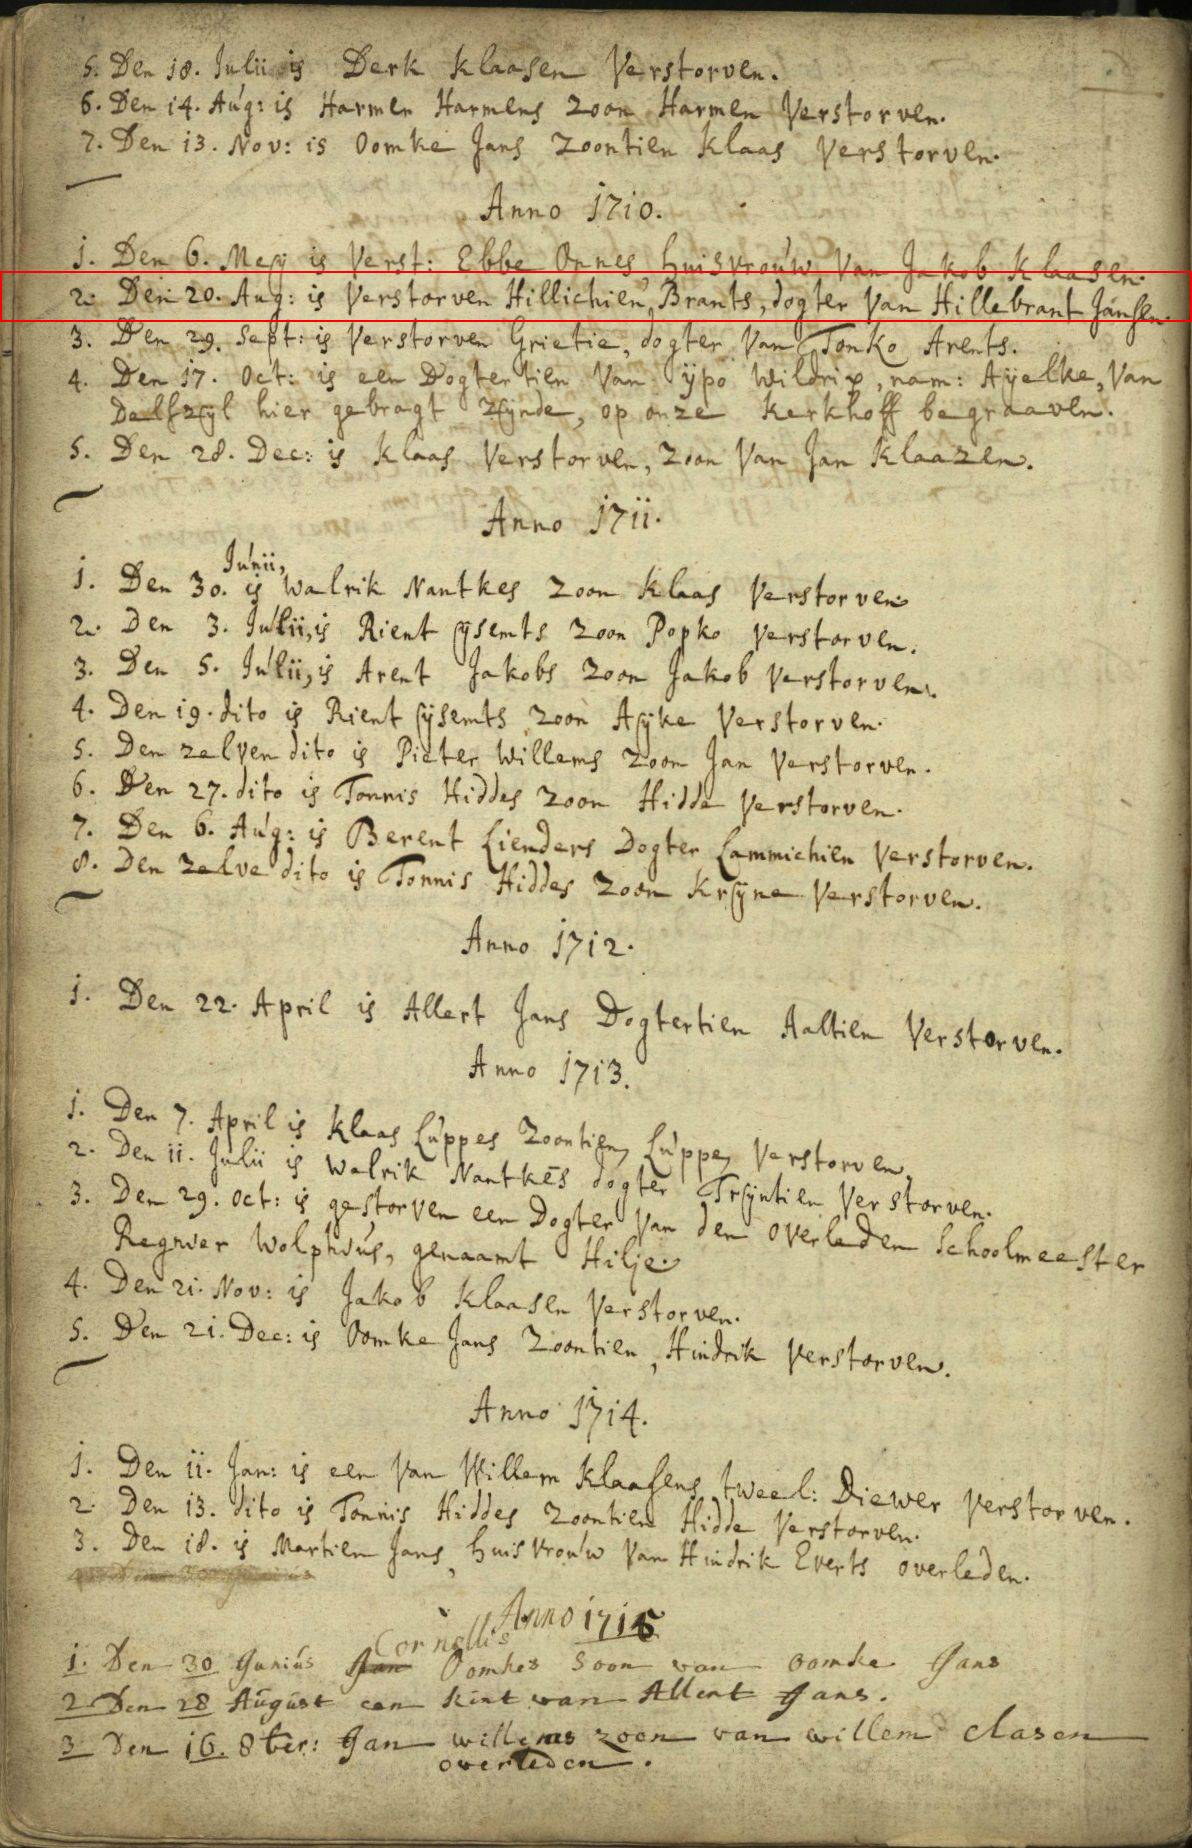 5. Den 18. Julii is Derk Klaasen Verstorven.
6. Den 14. Aug: is Harmen Harmens Zoon Harmen Verstorven.
7. Den 13. Nov: is Oomke Jans Zoontien Klaas Verstorven.
Anno 1710.
1. Den 6. Meij is Verst: Ebbe Onnes, huisvrouw Van Jakob Klaasen.
2. Den 20. Aug: is Verstorven Hillichien Brants, dogter Van Hillebrant Jansen.
3. Den 29. Sept: is Verstorven Grietie, dogter Van Tonko Arents.
4. Den 17. Oct: is een Dogtertien Van ijpo Wildrix, nam: Aijelke, Van
Delfzijl hier gebragt zijnde, op onze kerkhoff begraaven.
5. Den 28. Dec: is Klaas Verstorven, Zoon Van Jan Klaazen.
Anno 1711.
Junii,
1. Den 30. is Walrik Nantkes Zoon Klaas Verstorven
2. Den 3. Julii, is Rient Sijsemts Zoon Popko Verstorven.
3. Den 5. Julii, is Arent Jakobs Zoon Jakob Verstorven.
4. Den 19. dito is Rient Sijsemts Zoon Aijke Verstorven.
5. Den zelven dito is Pieter Willems Zoon Jan Verstorven.
6. Den 27. dito is Tonnis Hiddes Zoon Hidde Verstorven.
7. Den 6. Aug: is Berent Lienders Dogter Lammichien Verstorven.
8. Den zelve dito is Tonnis Hiddes Zoon Krijne Verstorven.
Anno 1712.
1. Den 22. April is Allert Jans Dogtertien Aaltien Verstorven.
Anno 1713.
1. Den 7. April is Klaas Luppes Zoontien, Luppe, Verstorven,
2. Den 11. Julii is Walrik Nantkes dogter Trijntien Verstorven.
3. Den 29. Oct: is gestorven een Dogter Van den Overleden Schoolmeester
Regnier Wolphius, genaamt Hilje.
4. Den 21. Nov: is Jakob Klaasen Verstorven.
5. Den 21. Dec: is Oomke Jans Zoontien, Hindrik Verstorven.
Anno 1714.
1. Den 11. Jan: is een Van Willem Klaasens tweel: Diewer Verstorven.
2. Den 13. dito is Tonnis Hiddes Zoontien Hidde Verstorven.
3. Den 18. is Martien Jans, huisvrouw Van Hindrik Everts overleden.
Anno 1715
Cornellis
1. Den 30 Junius Jan Oomkes Soon van Oomke Jans
2 Den 28 August een kint van Allert Jans.
3 Den 16. 8ber: Jan willems zoon van willem Clasen
overleden.